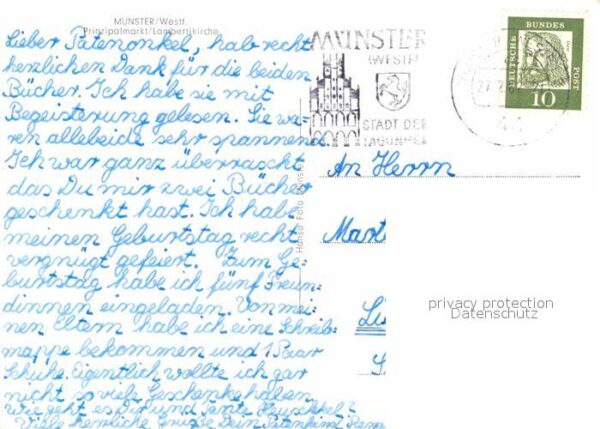 MÜNSTER/Westf.
Prinzipalmarkt/Lambertikirche
Lieber Patenonkel, hab recht
herzlichen Dank für die beiden
Bücher. Ich habe sie mit
Begeisterung gelesen. Sie wa=
ren allebeide sehr spannend
Ich war ganz überrascht
das Du mir zwei Bücher
geschenkt hast. Ich habe
meinen Geburtstag recht
vergnügt gefeiert. Zum Ge=
burtstag habe ich fünf Freun=
dinnen eingeladen. Von mei=
nen Eltern habe ich eine Schreib=
mappe bekommen und 1 Paar
Schuhe. Eigentlich wollte ich gar
nicht so viele Geschenke haben.
Wie geht es Dir und Tante
Viele herzliche Grüße Dein Patenkind
Hansa Foto Münster
MÜNSTER
(WESTF
STADT DER
DEUTSCHE
BUNDES
POST
10
44
An Herrn
Mart
privacy protection
Datenschutz